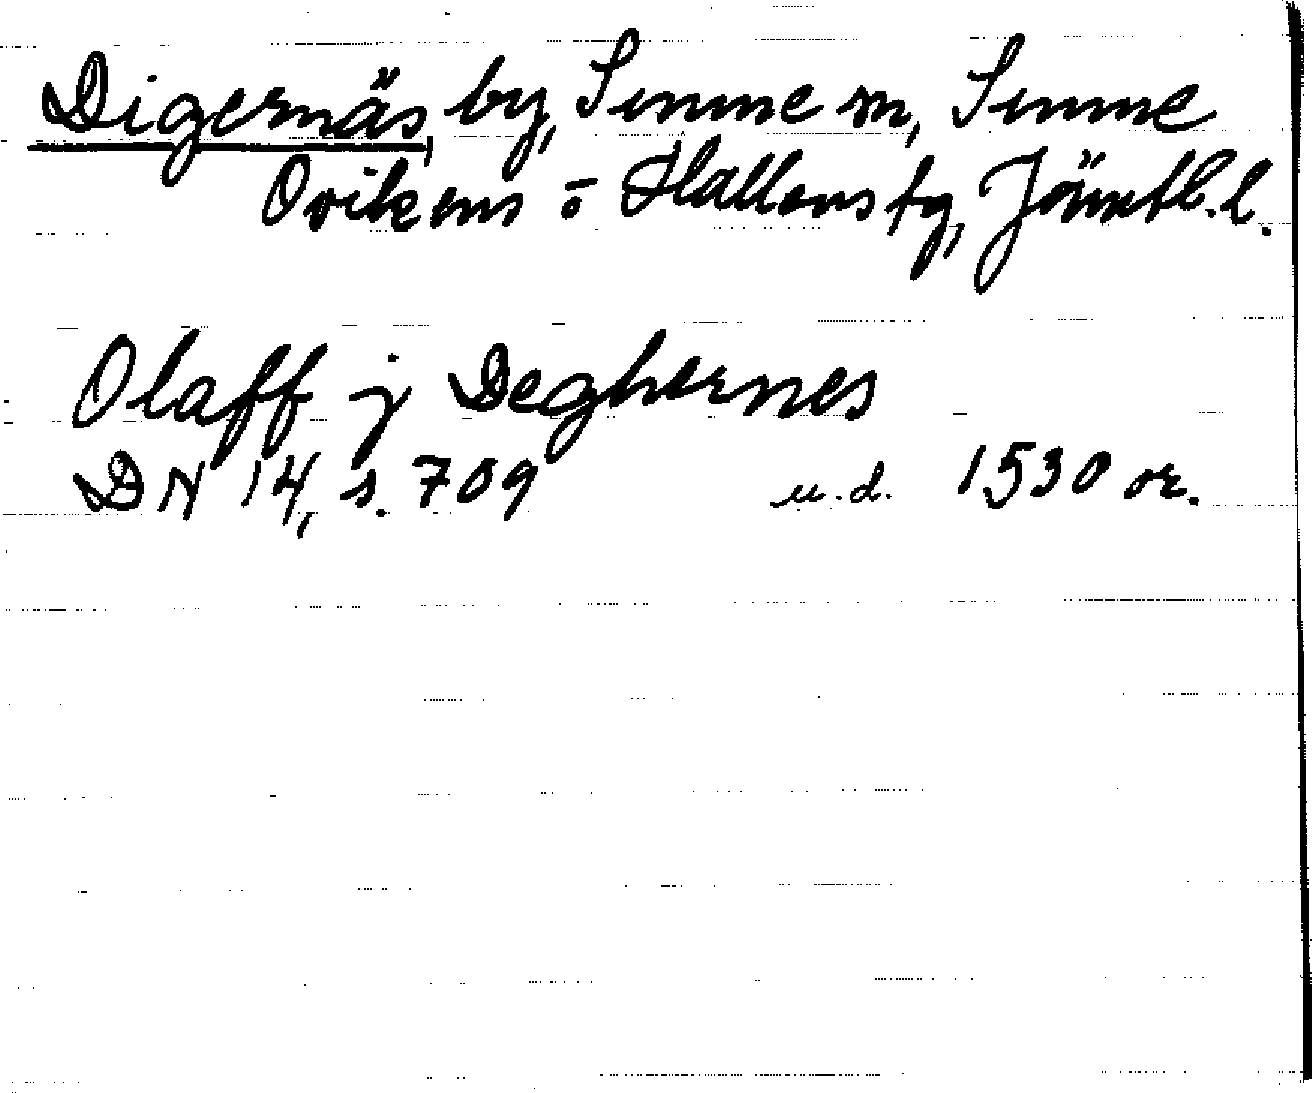 Digernäs, by, Sunne sn, Sunne
Ovikens o Hallens tg, Jämtl. l.
Olaff j Deghernes
DN 14, s. 709 u.d. 1530 or.